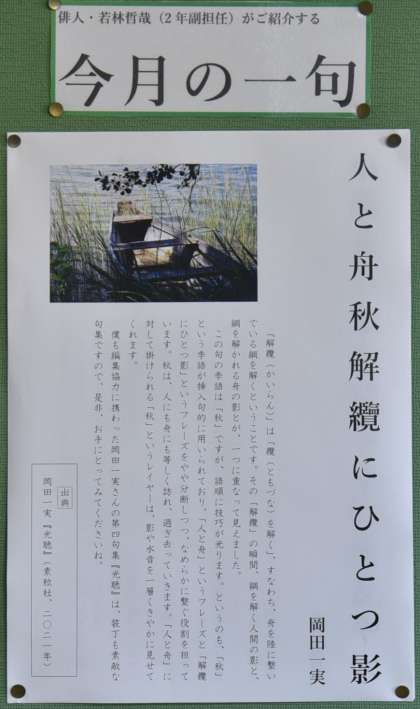 俳人・若林哲哉（２年副担任）がご紹介する
今月の一句
人と舟秋解纜にひとつ影
岡田一実
「解纜（かいらん）」は「纜（ともづな）を解く」、すなわち、舟を陸に繋い
でいる綱を解くということです。その「解纜」の瞬間、綱を解く人間の影と、
綱を解かれる舟の影とが、一つに重なって見えました。
この句の季語は「秋」ですが、語順に技巧が光ります。というのも、「秋」
という季語が挿入句的に用いられており、「人と舟」というフレーズと「解纜
にひとつ影」というフレーズをやや分断しつつ、なめらかに繋ぐ役割を担って
います。秋は、人にも舟にも等しく訪れ、過ぎ去っていきます。「人と舟」に
対して掛けられる「秋」というレイヤーは、影や水音を一層くきやかに見せて
くれます。
僕も編集協力に携わった岡田一実さんの第四句集『光聴』は、装丁も素敵な
句集ですので、是非、お手にとってみてくださいね。
出典
岡田一実『光聴』（素粒社、二〇二一年）